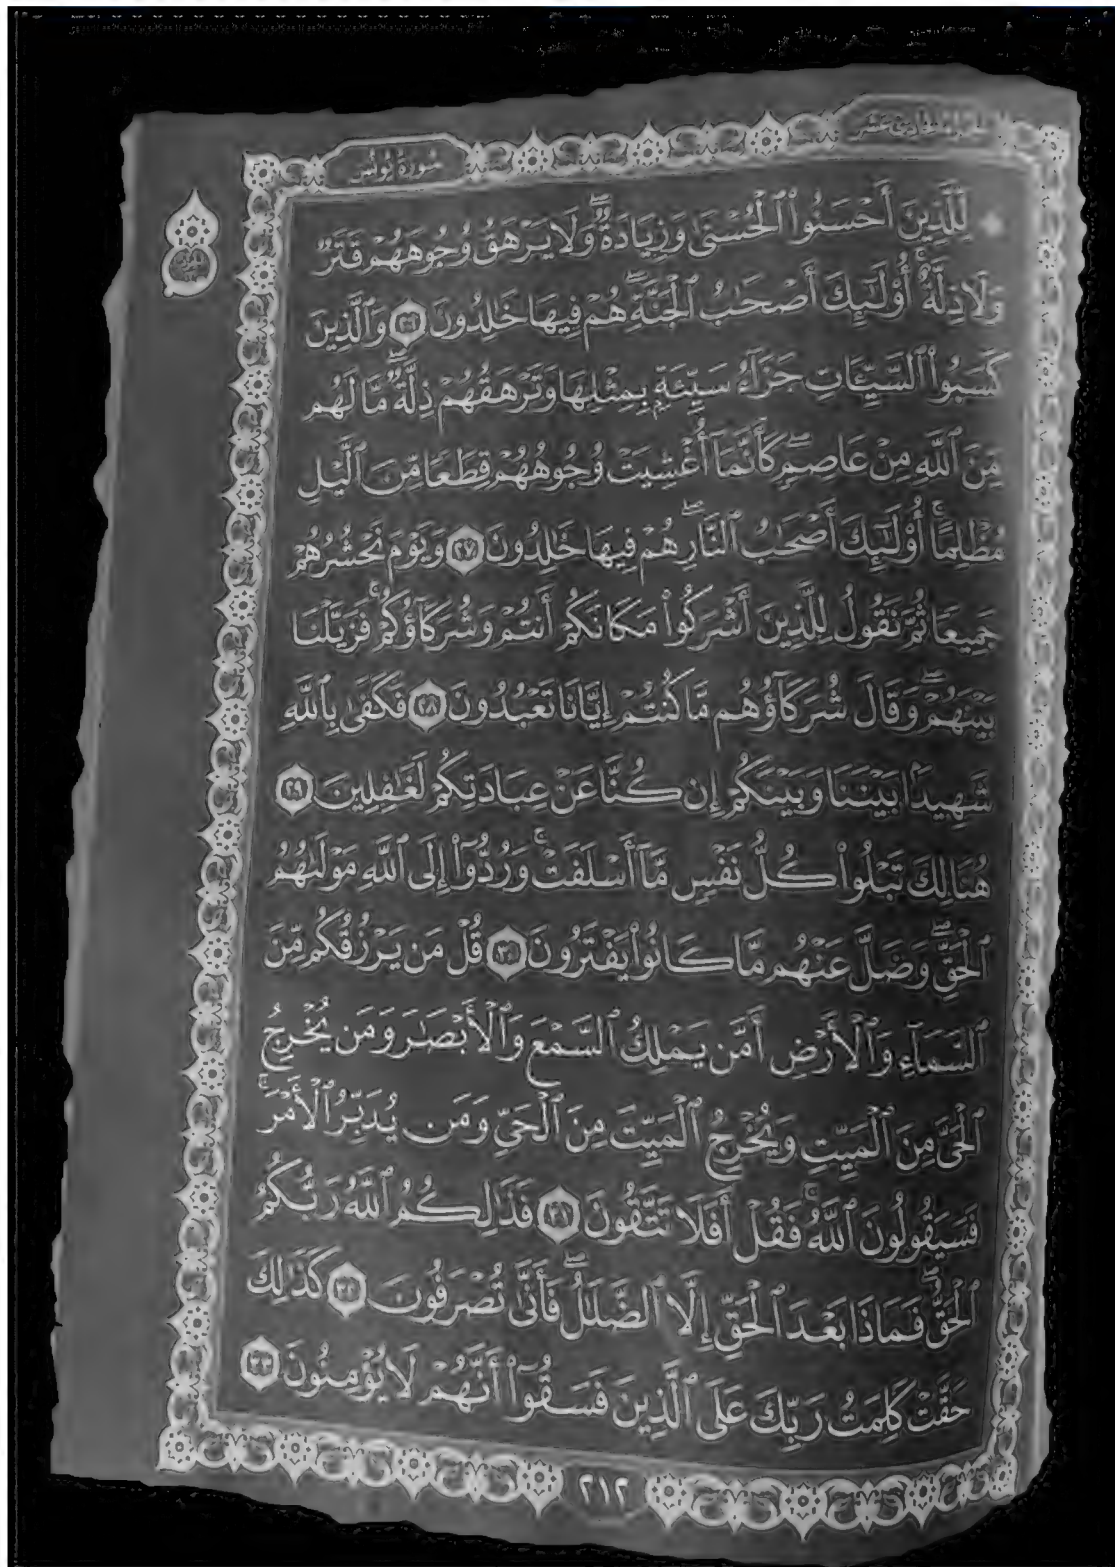 الجزء الحادي عشر
سورة يونس
لِّلَّذِينَ أَحْسَنُوا۟ ٱلْحُسْنَىٰ وَزِيَادَةٌ ۖ وَلَا يَرْهَقُ وُجُوهَهُمْ قَتَرٌ
وَلَا ذِلَّةٌ ۚ أُو۟لَـٰٓئِكَ أَصْحَـٰبُ ٱلْجَنَّةِ ۖ هُمْ فِيهَا خَـٰلِدُونَ ٢٦ وَٱلَّذِينَ
كَسَبُوا۟ ٱلسَّيِّـَٔاتِ جَزَآءُ سَيِّئَةٍۭ بِمِثْلِهَا وَتَرْهَقُهُمْ ذِلَّةٌ ۖ مَّا لَهُم
مِّنَ ٱللَّهِ مِنْ عَاصِمٍ ۖ كَأَنَّمَآ أُغْشِيَتْ وُجُوهُهُمْ قِطَعًا مِّنَ ٱلَّيْلِ
مُظْلِمًا ۚ أُو۟لَـٰٓئِكَ أَصْحَـٰبُ ٱلنَّارِ ۖ هُمْ فِيهَا خَـٰلِدُونَ ٢٧ وَيَوْمَ نَحْشُرُهُمْ
جَمِيعًا ثُمَّ نَقُولُ لِلَّذِينَ أَشْرَكُوا۟ مَكَانَكُمْ أَنتُمْ وَشُرَكَآؤُكُمْ ۚ فَزَيَّلْنَا
بَيْنَهُمْ ۖ وَقَالَ شُرَكَآؤُهُم مَّا كُنتُمْ إِيَّانَا تَعْبُدُونَ ٢٨ فَكَفَىٰ بِٱللَّهِ
شَهِيدًۢا بَيْنَنَا وَبَيْنَكُمْ إِن كُنَّا عَنْ عِبَادَتِكُمْ لَغَـٰفِلِينَ ٢٩
هُنَالِكَ تَبْلُوا۟ كُلُّ نَفْسٍ مَّآ أَسْلَفَتْ ۚ وَرُدُّوٓا۟ إِلَى ٱللَّهِ مَوْلَىٰهُمُ
ٱلْحَقِّ ۖ وَضَلَّ عَنْهُم مَّا كَانُوا۟ يَفْتَرُونَ ٣٠ قُلْ مَن يَرْزُقُكُم مِّنَ
ٱلسَّمَآءِ وَٱلْأَرْضِ أَمَّن يَمْلِكُ ٱلسَّمْعَ وَٱلْأَبْصَـٰرَ وَمَن يُخْرِجُ
ٱلْحَىَّ مِنَ ٱلْمَيِّتِ وَيُخْرِجُ ٱلْمَيِّتَ مِنَ ٱلْحَىِّ وَمَن يُدَبِّرُ ٱلْأَمْرَ ۚ
فَسَيَقُولُونَ ٱللَّهُ ۚ فَقُلْ أَفَلَا تَتَّقُونَ ٣١ فَذَٰلِكُمُ ٱللَّهُ رَبُّكُمُ
ٱلْحَقُّ ۖ فَمَاذَا بَعْدَ ٱلْحَقِّ إِلَّا ٱلضَّلَـٰلُ ۖ فَأَنَّىٰ تُصْرَفُونَ ٣٢ كَذَٰلِكَ
حَقَّتْ كَلِمَتُ رَبِّكَ عَلَى ٱلَّذِينَ فَسَقُوٓا۟ أَنَّهُمْ لَا يُؤْمِنُونَ ٣٣
٢١٢